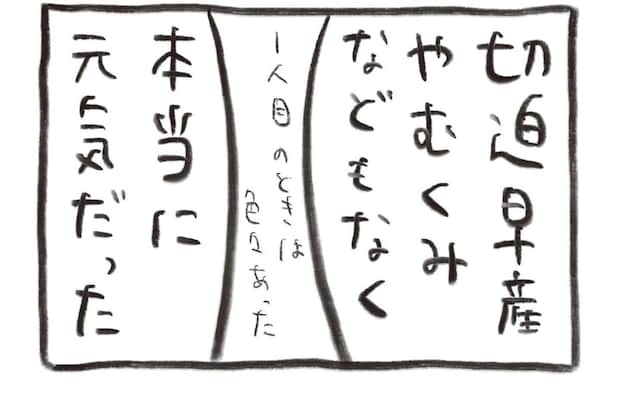 切迫早産
やむくみ
などもなく
1人目のときは
色々あった
本当に
元気だった